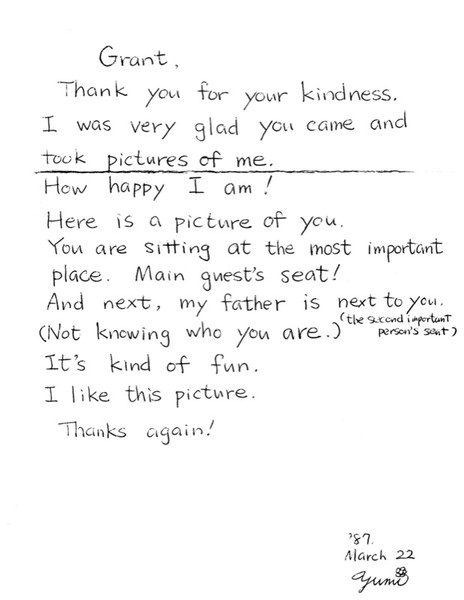 Grant,
Thank you for your kindness.
I was very glad you came and
took pictures of me.
How happy I am!
Here is a picture of you.
You are sitting at the most important
place. Main guest's seat!
And next, my father is next to you.
(the second important
person's seat)
(Not knowing who you are.)
It's kind of fun.
I like this picture.
Thanks again!
'87.
March 22
Yumi